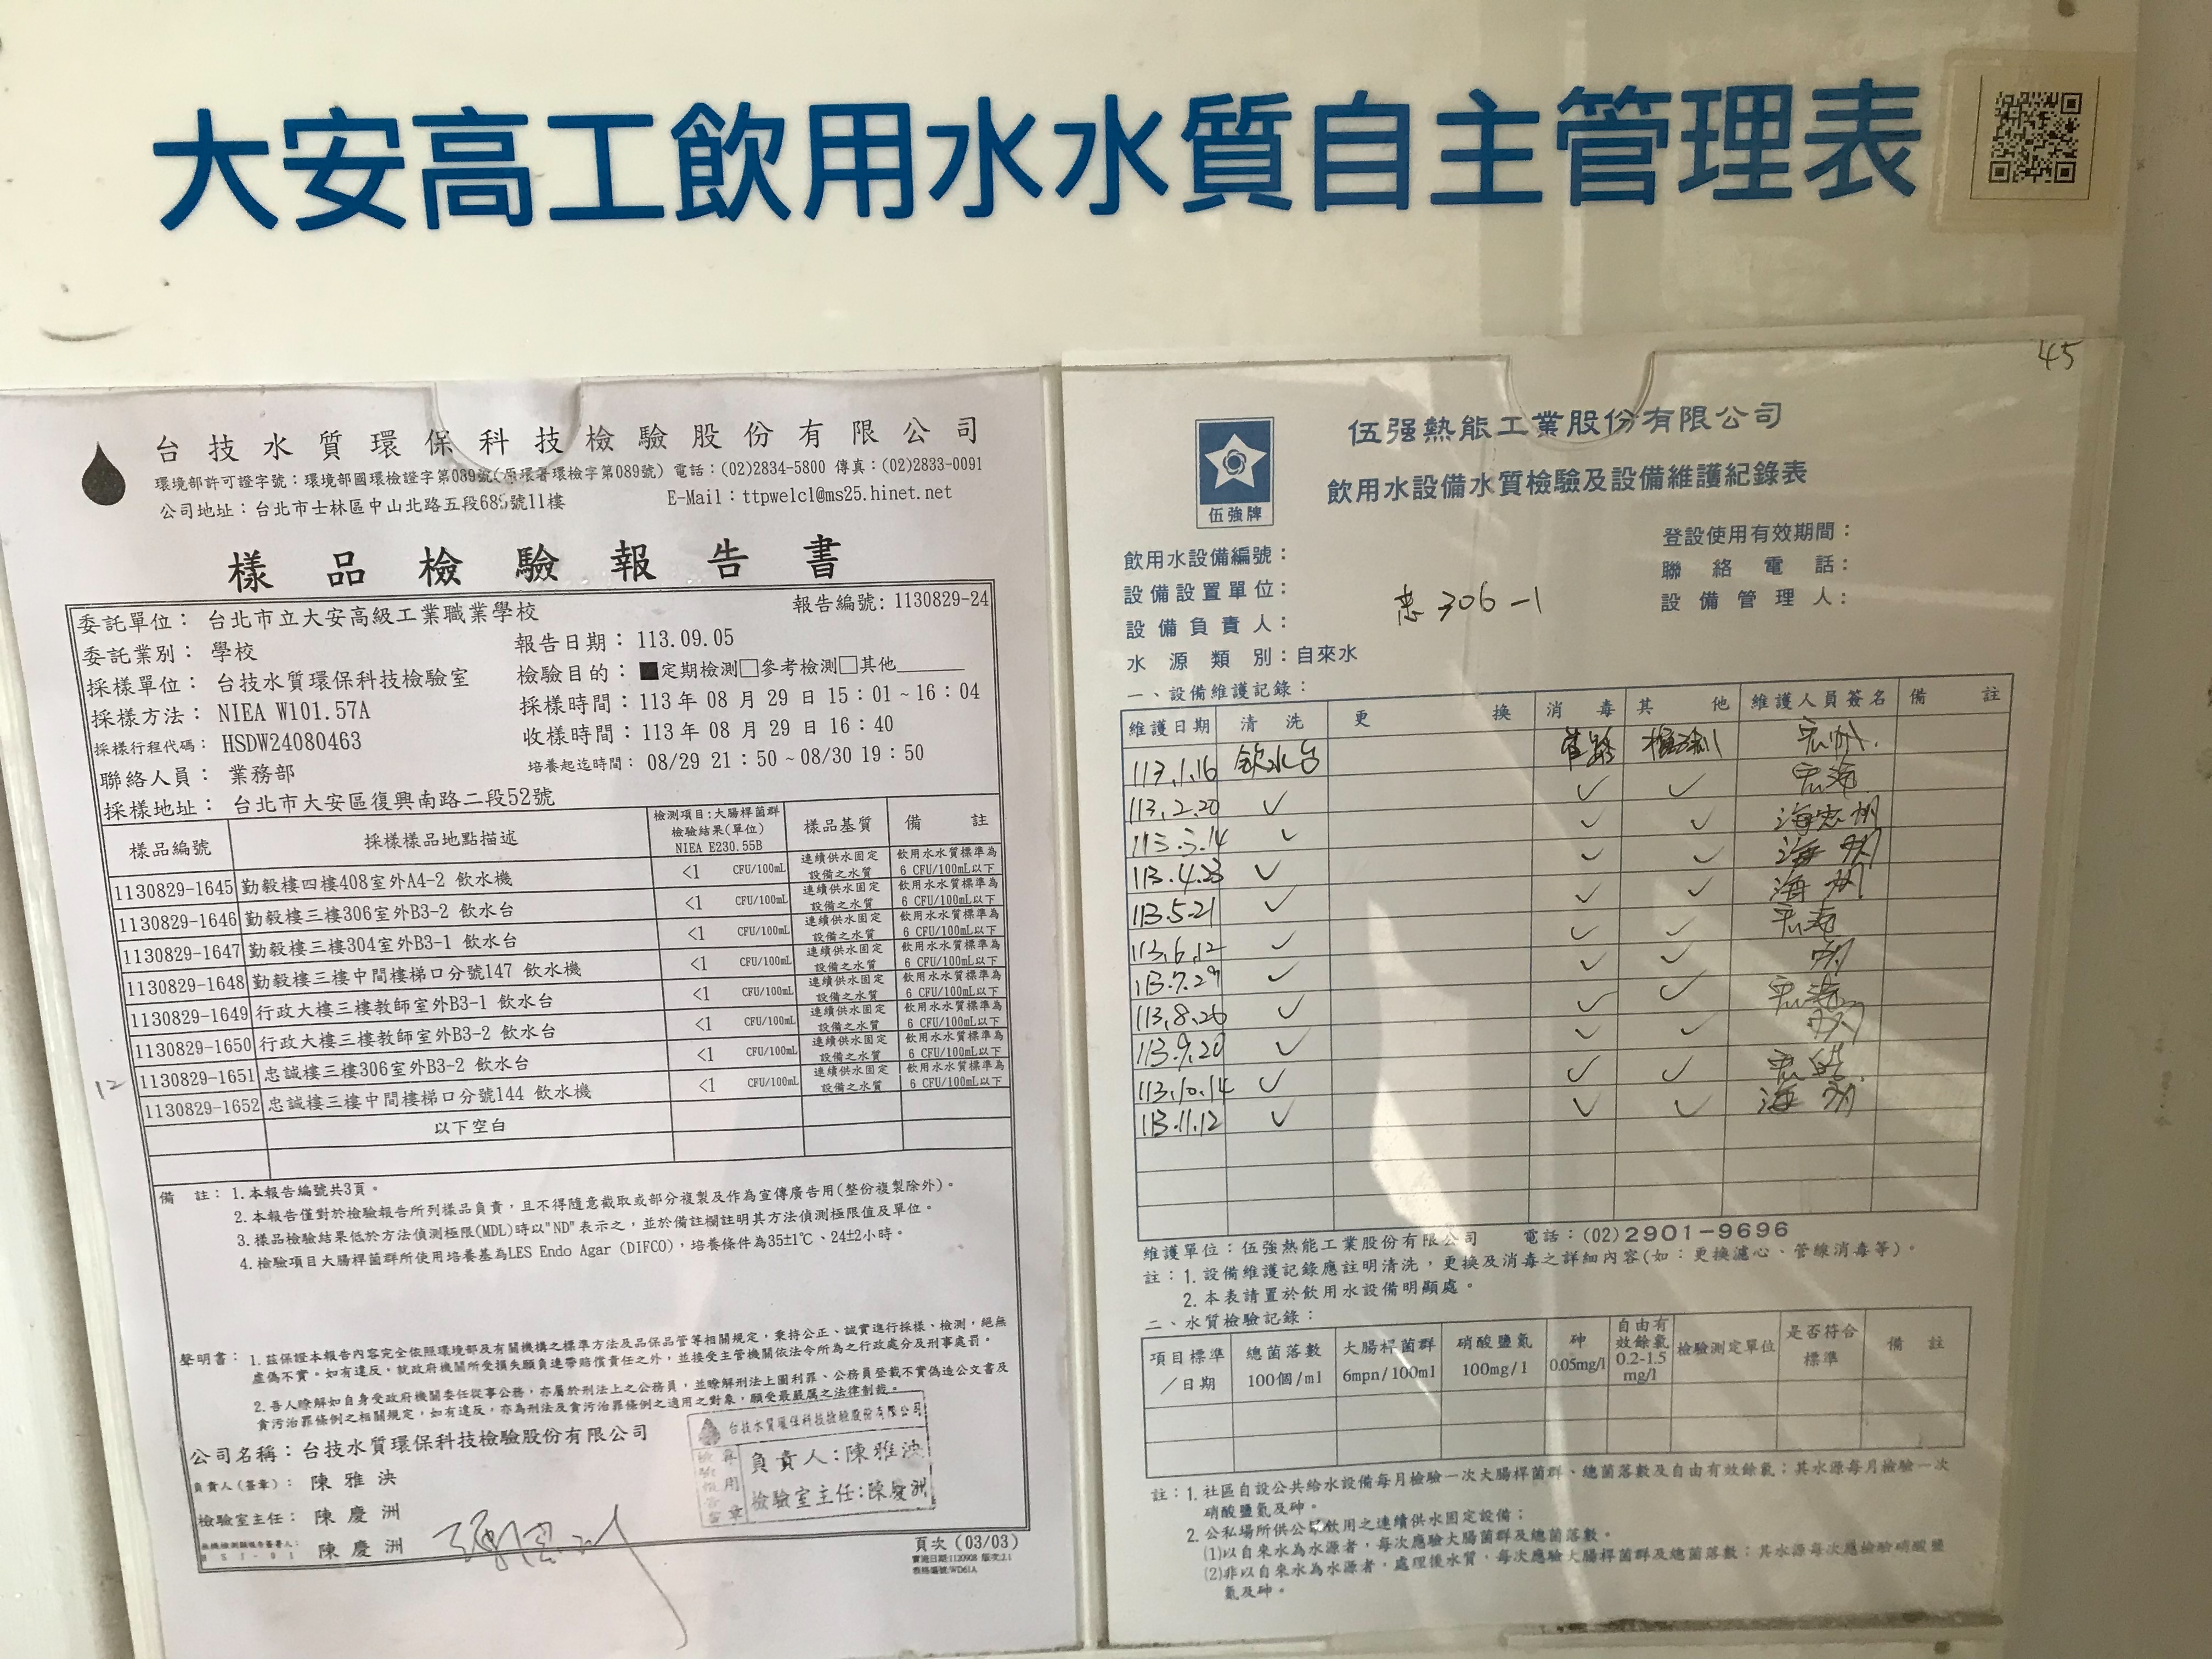 大安高工飲用水水質自主管理表
台技水質環保科技檢驗股份有限公司
環境部許可證字號：環境部國環檢證字第089號(原環署環檢字第089號) 電話：(02)2834-5800 傳真：(02)2833-0091
公司地址：台北市士林區中山北路五段685號11樓 E-Mail：ttpwelcl@ms25.hinet.net
樣品檢驗報告書
委託單位： 台北市立大安高級工業職業學校 報告編號: 1130829-24
委託業別： 學校 報告日期：113.09.05
採樣單位： 台技水質環保科技檢驗室 檢驗目的：■定期檢測□參考檢測□其他
採樣方法： NIEA W101.57A 採樣時間：113 年 08 月 29 日 15：01 ~ 16：04
採樣行程代碼： HSDW24080463 收樣時間：113 年 08 月 29 日 16：40
聯絡人員： 業務部 培養起迄時間： 08/29 21：50 ~ 08/30 19：50
採樣地址： 台北市大安區復興南路二段52號
樣品編號 採樣樣品地點描述 檢測項目:大腸桿菌群 檢驗結果(單位) NIEA E230.55B 樣品基質 備註
1130829-1645 勤毅樓四樓408室外A4-2 飲水機 <1 CFU/100mL 連續供水固定設備之水質 飲用水水質標準為6 CFU/100mL以下
1130829-1646 勤毅樓三樓306室外B3-2 飲水台 <1 CFU/100mL 連續供水固定設備之水質 飲用水水質標準為6 CFU/100mL以下
1130829-1647 勤毅樓三樓304室外B3-1 飲水台 <1 CFU/100mL 連續供水固定設備之水質 飲用水水質標準為6 CFU/100mL以下
1130829-1648 勤毅樓三樓中間樓梯口分號147 飲水機 <1 CFU/100mL 連續供水固定設備之水質 飲用水水質標準為6 CFU/100mL以下
1130829-1649 行政大樓三樓教師室外B3-1 飲水台 <1 CFU/100mL 連續供水固定設備之水質 飲用水水質標準為6 CFU/100mL以下
1130829-1650 行政大樓三樓教師室外B3-2 飲水台 <1 CFU/100mL 連續供水固定設備之水質 飲用水水質標準為6 CFU/100mL以下
1130829-1651 忠誠樓三樓306室外B3-2 飲水台 <1 CFU/100mL 連續供水固定設備之水質 飲用水水質標準為6 CFU/100mL以下
12
1130829-1652 忠誠樓三樓中間樓梯口分號144 飲水機 <1 CFU/100mL 連續供水固定設備之水質 飲用水水質標準為6 CFU/100mL以下
以下空白
備註：1.本報告編號共3頁。
2.本報告僅對於檢驗報告所列樣品負責，且不得隨意截取或部分複製及作為宣傳廣告用(整份複製除外)。
3.樣品檢驗結果低於方法偵測極限(MDL)時以"ND"表示之，並於備註欄註明其方法偵測極限值及單位。
4.檢驗項目大腸桿菌群所使用培養基為LES Endo Agar (DIFCO)，培養條件為35±1℃、24±2小時。
聲明書：1.茲保證本報告內容完全依照環境部及有關機構之標準方法及品保品管等相關規定，秉持公正、誠實進行採樣、檢測，絕無
虛偽不實。如有違反，就政府機關所受損失願負連帶賠償責任之外，並接受主管機關依法令所為之行政處分及刑事處罰。
2.吾人瞭解如自身受政府機關委任從事公務，亦屬於刑法上之公務員，並瞭解刑法上圖利罪、公務員登載不實偽造公文書及
貪污治罪條例之相關規定，如有違反，亦為刑法及貪污治罪條例之適用之對象，願受最嚴厲之法律制裁。
公司名稱：台技水質環保科技檢驗股份有限公司
負責人(簽章)： 陳雅泱
檢驗室主任： 陳慶洲
陳慶洲
台技水質環保科技檢驗股份有限公司
負責人：陳雅泱
檢驗室主任:陳慶洲
頁次 (03/03)
實施日期:1120908 版次:2.1
表格編號:WD61A
45
伍強牌
伍强熱能工業股份有限公司
飲用水設備水質檢驗及設備維護紀錄表
飲用水設備編號： 登設使用有效期間：
設備設置單位： 聯絡電話：
設備負責人： 306-1 設備管理人：
水源類別：自來水
一、設備維護記錄：
維護日期 清洗 更換 消毒 其他 維護人員簽名 備註
113.1.16 飲水台 管路 檢測
113.2.20 ✓ ✓ ✓
113.3.14 ✓ ✓ ✓
113.4.23 ✓ ✓ ✓
113.5.21 ✓ ✓ ✓
113.6.12 ✓ ✓ ✓
113.7.29 ✓ ✓ ✓
113.8.26 ✓ ✓ ✓
113.9.20 ✓ ✓ ✓
113.10.14 ✓ ✓ ✓
113.11.12 ✓ ✓ ✓
維護單位：伍強熱能工業股份有限公司 電話：(02)2901-9696
註：1.設備維護記錄應註明清洗，更換及消毒之詳細內容(如：更換濾心、管線消毒等)。
2.本表請置於飲用水設備明顯處。
二、水質檢驗記錄：
項目標準／日期 總菌落數 100個/ml 大腸桿菌群 6mpn/100ml 硝酸鹽氮 100mg/l 砷 0.05mg/l 自由有效餘氯 0.2-1.5 mg/l 檢驗測定單位 是否符合標準 備註
註：1.社區自設公共給水設備每月檢驗一次大腸桿菌群、總菌落數及自由有效餘氯；其水源每月檢驗一次
硝酸鹽氮及砷。
2.公私場所供公眾飲用之連續供水固定設備：
(1)以自來水為水源者，每次應驗大腸桿菌群及總菌落數。
(2)非以自來水為水源者，處理後水質，每次應驗大腸桿菌群及總菌落數；其水源每次應檢驗硝酸鹽
氮及砷。